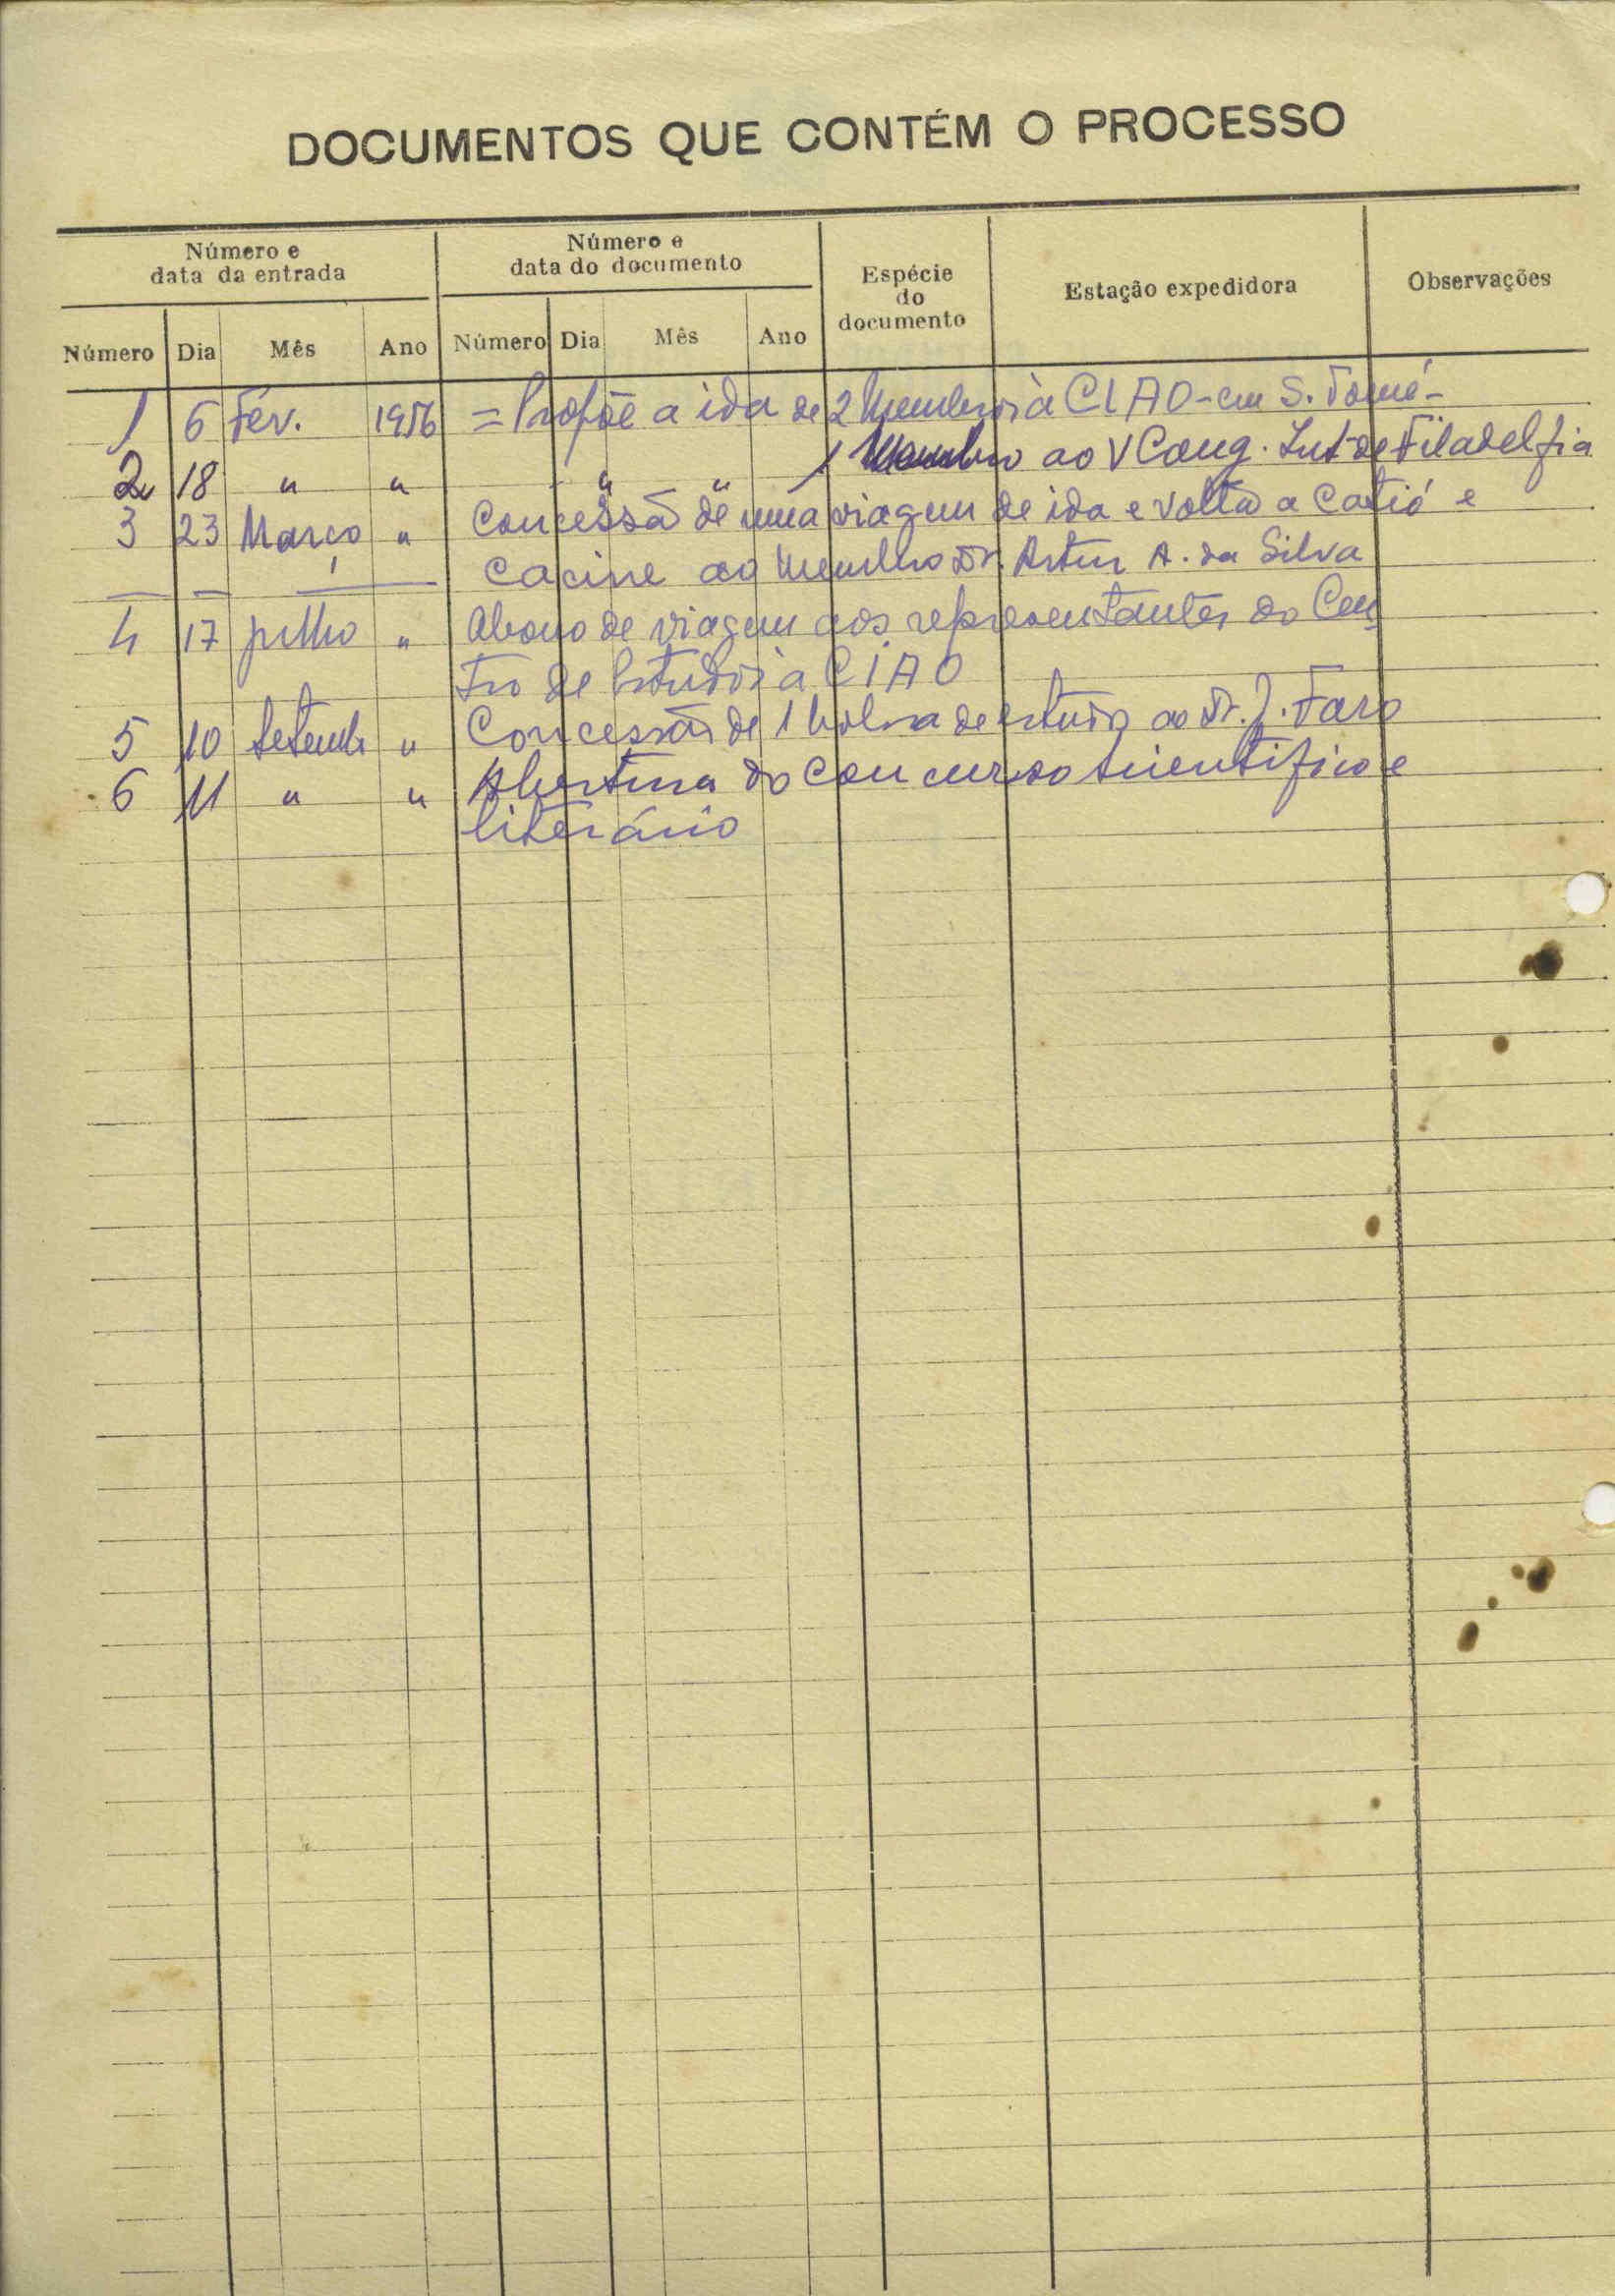 DOCUMENTOS QUE CONTÉM O PROCESSO
Número e data da entrada
Número e data do documento
Espécie do documento
Estação expedidora
Observações
Número Dia Mês Ano Número Dia Mês Ano
1 6 Fev. 1956 = Propõe a ida de 2 Membros à CIAO - em S. Tomé -
2 18 " " " " 1 Membro ao V Cong. Int. de Filadelfia
3 23 Março " Concessão de uma viagem de ida e volta a Catió e
Cacine ao Membro Dr. Artur A. da Silva
4 17 julho " Abono de viagem aos representantes do Cen
tro de Estudos à CIAO
5 10 Setemb " Concessão de 1 bolsa de estudo ao Dr. J. Faro
6 11 " " Abertura do Concurso scientifico e
literário